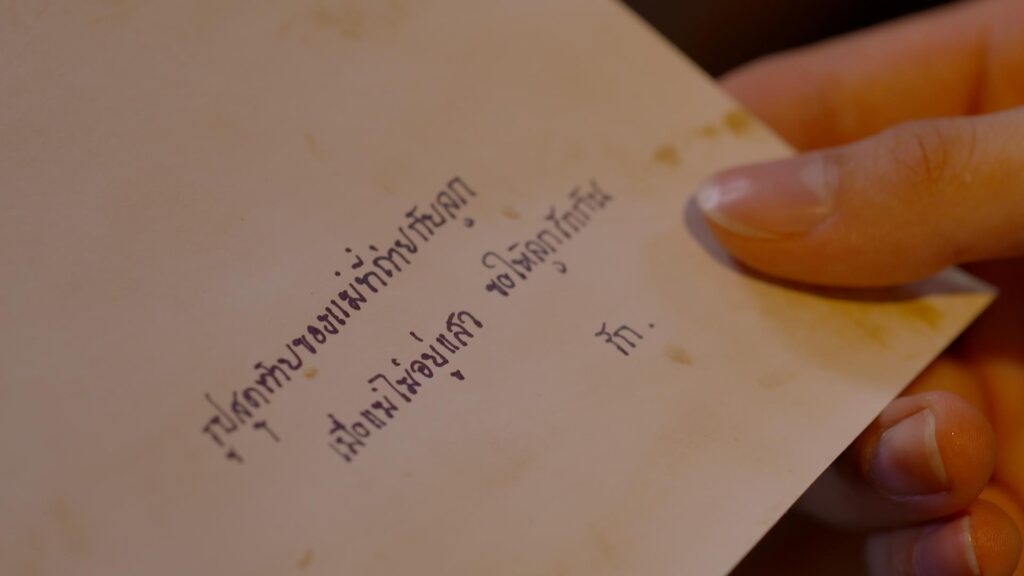 รูปสุดท้ายของแม่ที่ถ่ายกับลูก
เมื่อแม่ไม่อยู่แล้ว ขอให้ลูกรักกัน
รัก.